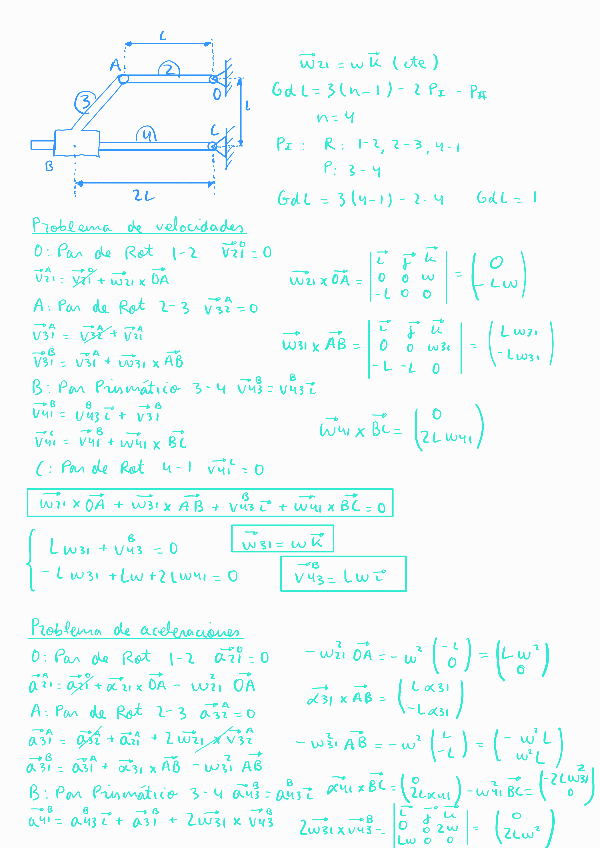 L
A
2
O
3
L
4
C
B
2L
w⃗21 = w k⃗ (cte)
GdL = 3(n-1) - 2 PI - PII
n = 4
PI : R : 1-2, 2-3, 4-1
P: 3-4
GdL = 3(4-1) - 2·4 GdL = 1
Problema de velocidades
O: Par de Rot 1-2 v⃗21^O = 0
v⃗21^A = v⃗21^O + w⃗21 x OA
w⃗21 x OA = | i⃗ j⃗ k⃗ ; 0 0 w ; -L 0 0 | = ( 0 ; -Lw )
A: Par de Rot 2-3 v⃗32^A = 0
v⃗31^A = v⃗32^A + v⃗21^A
v⃗31^B = v⃗31^A + w⃗31 x AB
w⃗31 x AB = | i⃗ j⃗ k⃗ ; 0 0 w31 ; -L -L 0 | = ( L w31 ; -L w31 )
B: Par Prismático 3-4 v⃗43^B = v43^B i⃗
v⃗41^B = v43^B i⃗ + v⃗31^B
v⃗41^C = v⃗41^B + w⃗41 x BC
w⃗41 x BC = ( 0 ; 2L w41 )
C: Par de Rot 4-1 v⃗41^C = 0
w⃗21 x OA + w⃗31 x AB + v43^B i⃗ + w⃗41 x BC = 0
L w31 + v43^B = 0
-L w31 + Lw + 2L w41 = 0
w⃗31 = w k⃗
v⃗43^B = L w i⃗
Problema de aceleraciones
O: Par de Rot 1-2 a⃗21^O = 0
a⃗21^A = a⃗21^O + α⃗21 x OA - w21² OA
-w21² OA = -w² ( -L ; 0 ) = ( L w² ; 0 )
A: Par de Rot 2-3 a⃗32^A = 0
α⃗31 x AB = ( L α31 ; -L α31 )
a⃗31^A = a⃗32^A + a⃗21^A + 2 w⃗21 x v⃗32^A
a⃗31^B = a⃗31^A + α⃗31 x AB - w31² AB
-w31² AB = -w² ( L ; -L ) = ( -w² L ; w² L )
B: Par Prismático 3-4 a⃗43^B = a43^B i⃗
α⃗41 x BC = ( 0 ; 2L α41 ) - w41² BC = ( -2L w31² ; 0 )
a⃗41^B = a43^B i⃗ + a⃗31^B + 2 w⃗31 x v⃗43^B
2 w⃗31 x v⃗43^B = | i⃗ j⃗ k⃗ ; 0 0 2w ; Lw 0 0 | = ( 0 ; 2L w² )